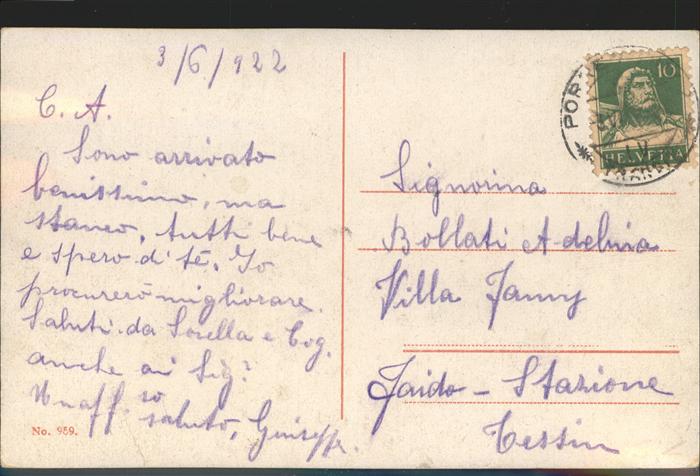 3/6/922
C. A.
Sono arrivato
benissimo, ma
stanco, tutti bene
e spero di te. Io
procurerò migliorare.
Saluti da Sorella e Cog.
anche ai Sig.i
Un aff.so
saluto, Giuseppe.
No. 959.
10
HELVETIA
POR
Signorina
Bollati Adelina
Villa Fanny
Faido - Stazione
Tessin